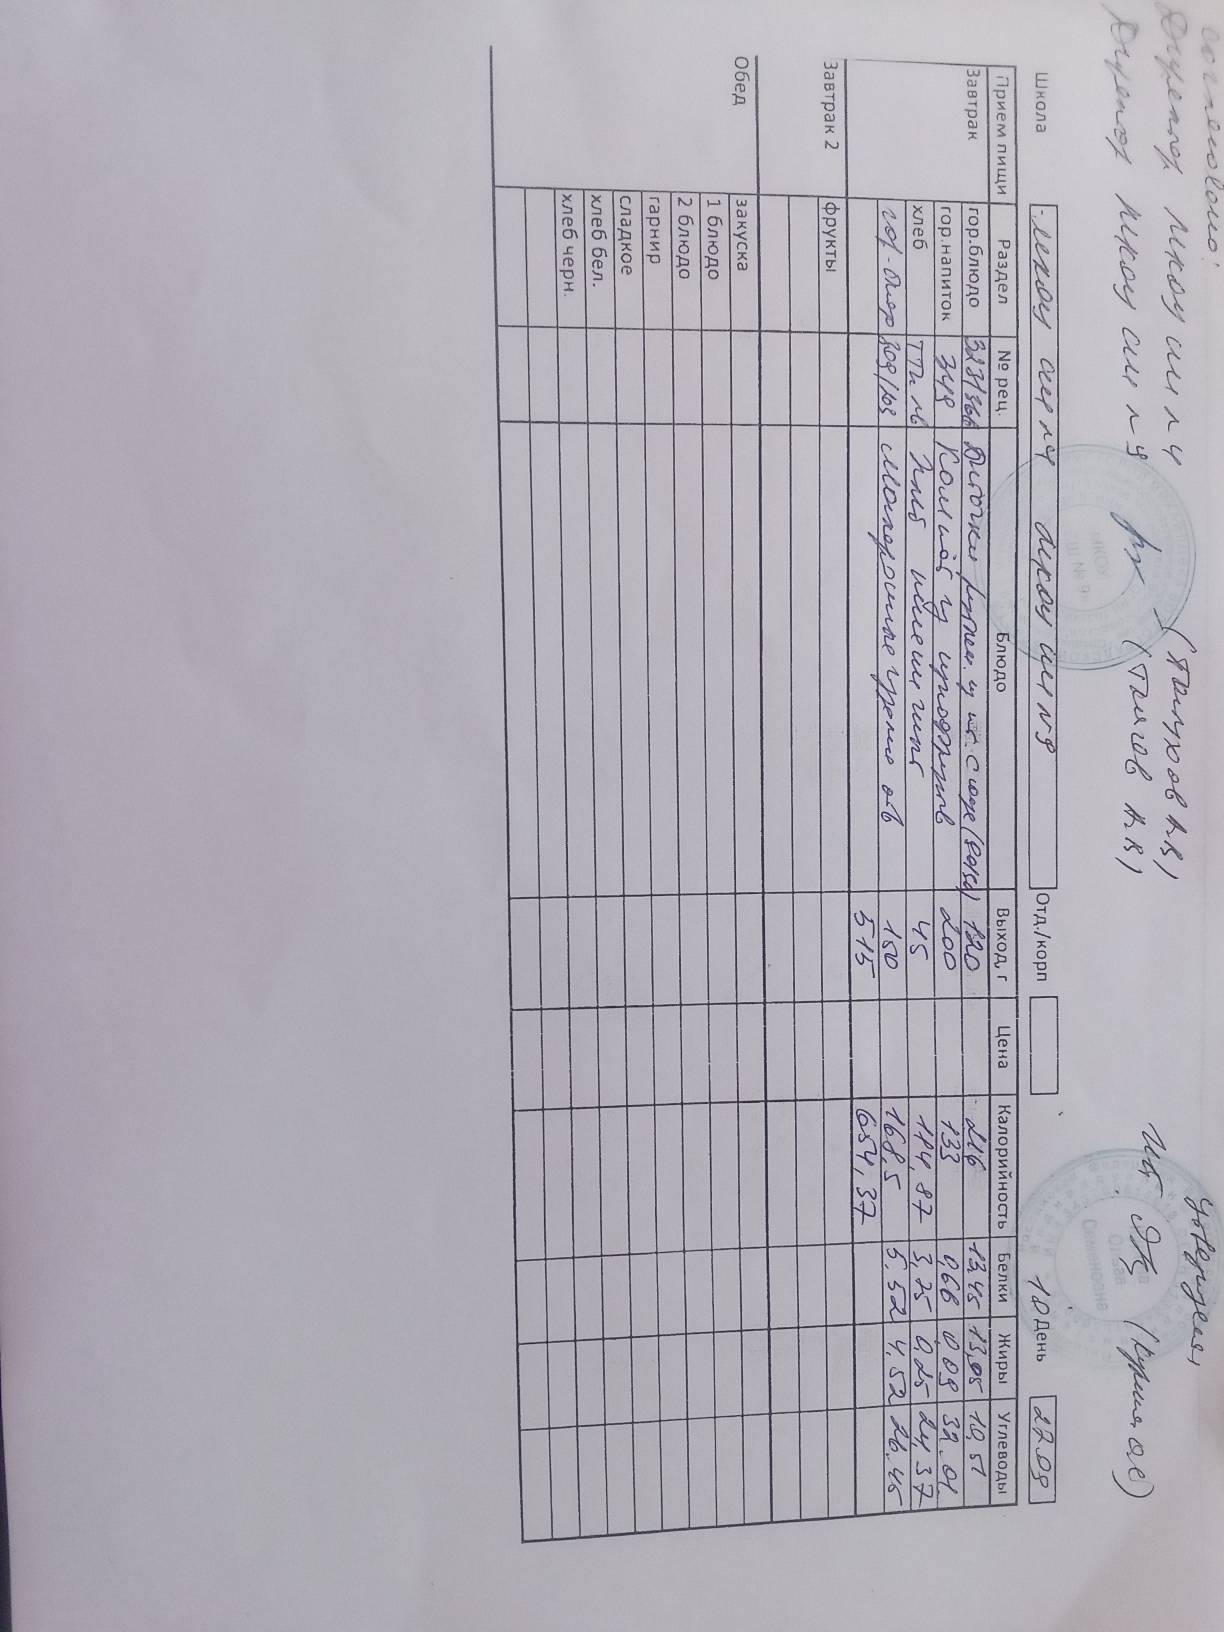 Согласовано:
Директор МКОУ СШ № 4
Директор МКОУ СШ № 9
Утверждаю
ИП
Школа МКОУ СШ №4 МКОУ СШ №9 Отд./корп 10 День 22.09
Прием пищи Раздел № рец. Блюдо Выход, г Цена Калорийность Белки Жиры Углеводы
Завтрак гор.блюдо Биточки (80/50) 120 216 13,45 13,05 10,51
гор.напиток 349 Компот из сухофруктов 200 133 0,66 0,09 32.01
хлеб Хлеб пшеничный 45 3,75 0,25 24,37
гор.блюдо 309/203 Макаронные отв 150 168,5 5,52 4,52 26,45
515 654,37
Завтрак 2 фрукты
Обед закуска
1 блюдо
2 блюдо
гарнир
сладкое
хлеб бел.
хлеб черн.